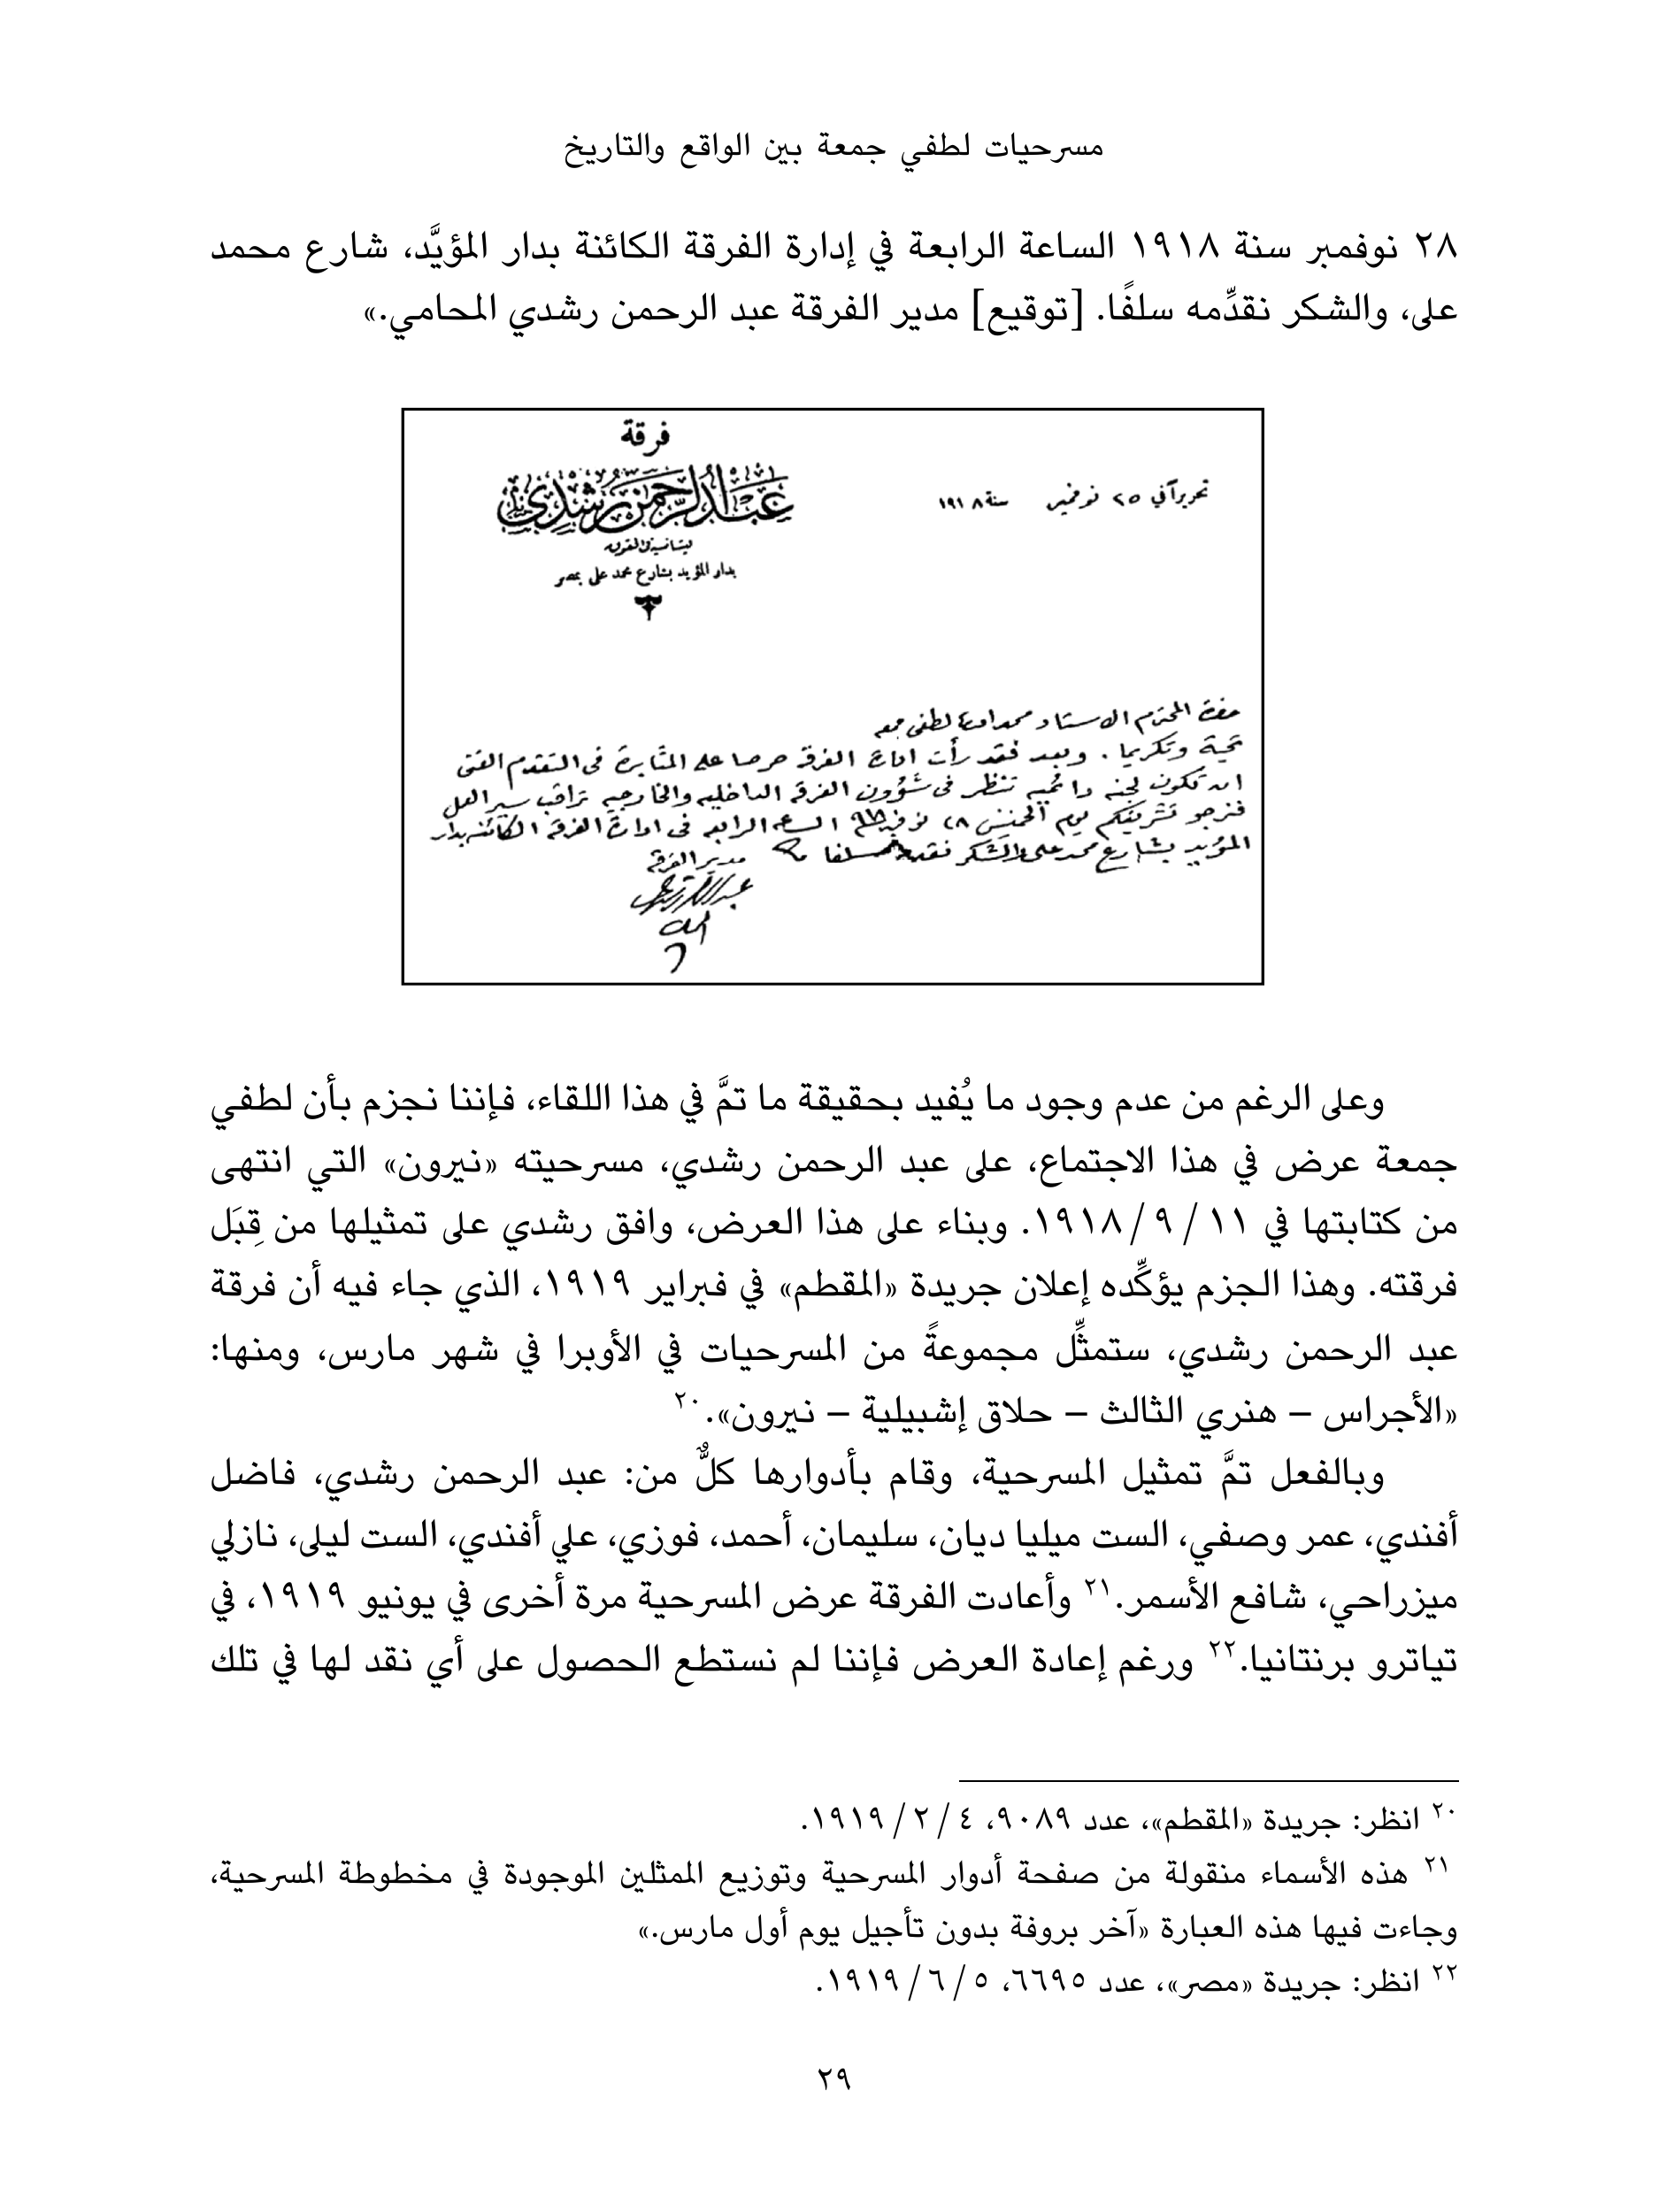 مسرحيات لطفي جمعة بين الواقع والتاريخ
٢٨ نوفمبر سنة ١٩١٨ الساعة الرابعة في إدارة الفرقة الكائنة بدار المؤيَّد، شارع محمد
على، والشكر نقدِّمه سلفًا. [توقيع] مدير الفرقة عبد الرحمن رشدي المحامي.»
فرقة
عبد الرحمن رشدي
تحريراً في ٢٥ نوفمبر سنة ١٩١٨
بدار المؤيد بشارع محمد على بمصر
حضرة المحترم الاستاذ محمد لطفى جمعه
تحية وتكريما . وبعد فقد رأت ادارة الفرقة حرصا على المثابرة فى التقدم الفنى
ان تكون لجنه دائميه تنظر فى شؤون الفرقه الداخليه والخارجيه تراقب سير العمل
فنرجو تشريفكم يوم الخميس ٢٨ نوفمبر الساعه الرابعه فى ادارة الفرقه الكائنه بدار
المؤيد بشارع محمد على والشكر نقدمه سلفا
مدير الفرقه
وعلى الرغم من عدم وجود ما يُفيد بحقيقة ما تمَّ في هذا اللقاء، فإننا نجزم بأن لطفي
جمعة عرض في هذا الاجتماع، على عبد الرحمن رشدي، مسرحيته «نيرون» التي انتهى
من كتابتها في ١١ / ٩ /١٩١٨. وبناء على هذا العرض، وافق رشدي على تمثيلها من قِبَل
فرقته. وهذا الجزم يؤكِّده إعلان جريدة «المقطم» في فبراير ١٩١٩، الذي جاء فيه أن فرقة
عبد الرحمن رشدي، ستمثِّل مجموعةً من المسرحيات في الأوبرا في شهر مارس، ومنها:
«الأجراس – هنري الثالث – حلاق إشبيلية – نيرون».٢٠
وبالفعل تمَّ تمثيل المسرحية، وقام بأدوارها كلٌّ من: عبد الرحمن رشدي، فاضل
أفندي، عمر وصفي، الست ميليا ديان، سليمان، أحمد، فوزي، علي أفندي، الست ليلى، نازلي
ميزراحي، شافع الأسمر.٢١ وأعادت الفرقة عرض المسرحية مرة أخرى في يونيو ١٩١٩، في
تياترو برنتانيا.٢٢ ورغم إعادة العرض فإننا لم نستطع الحصول على أي نقد لها في تلك
٢٠ انظر: جريدة «المقطم»، عدد ٩٠٨٩، ٤ / ٢ / ١٩١٩.
٢١ هذه الأسماء منقولة من صفحة أدوار المسرحية وتوزيع الممثلين الموجودة في مخطوطة المسرحية،
وجاءت فيها هذه العبارة «آخر بروفة بدون تأجيل يوم أول مارس.»
٢٢ انظر: جريدة «مصر»، عدد ٦٦٩٥، ٥ / ٦ / ١٩١٩.
٢٩